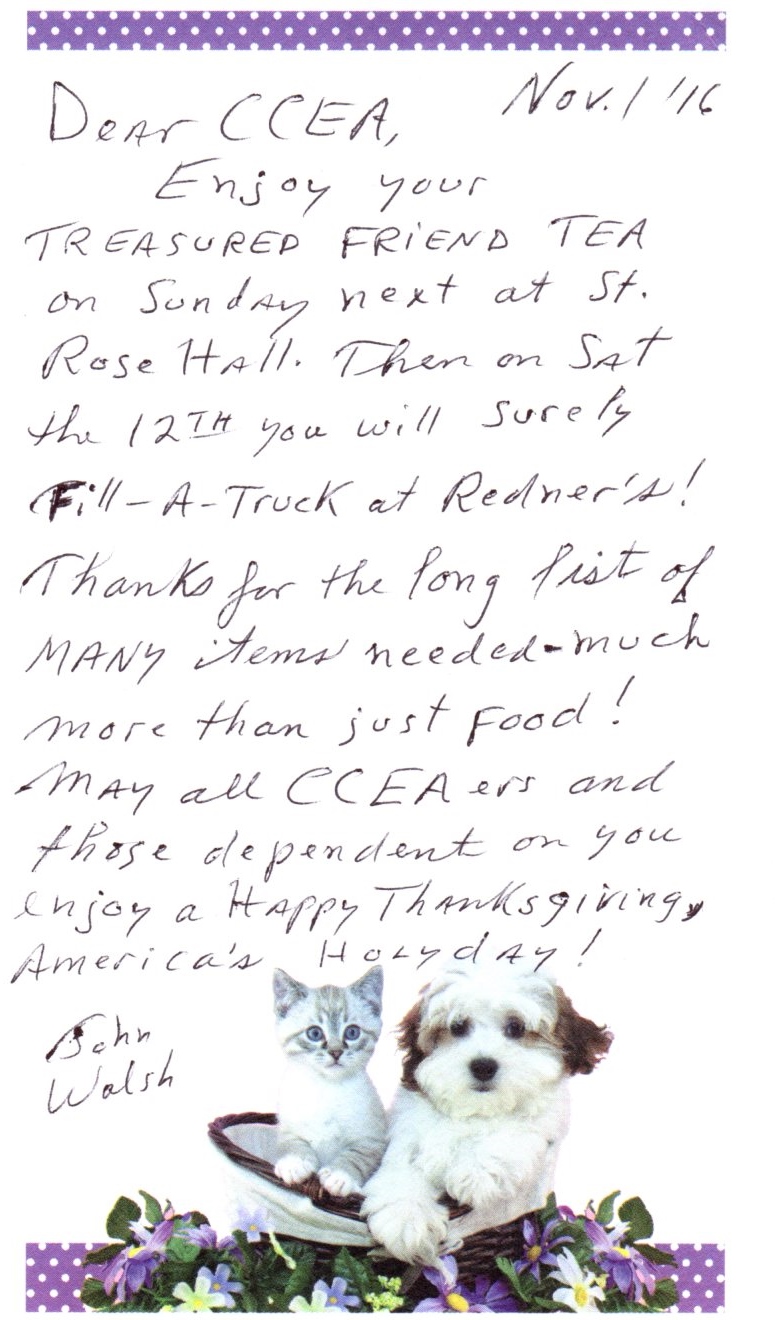 Nov. 1 '16
Dear CCEA,
Enjoy your
TREASURED FRIEND TEA
on Sunday next at St.
Rose Hall. Then on SAT
the 12TH you will surely
Fill-A-Truck at Redner's!
Thanks for the long list of
MANY items needed-much
more than just food!
MAY all CCEAers and
those dependent on you
enjoy a Happy Thanksgiving,
America's HOLYDAY!
John
Walsh